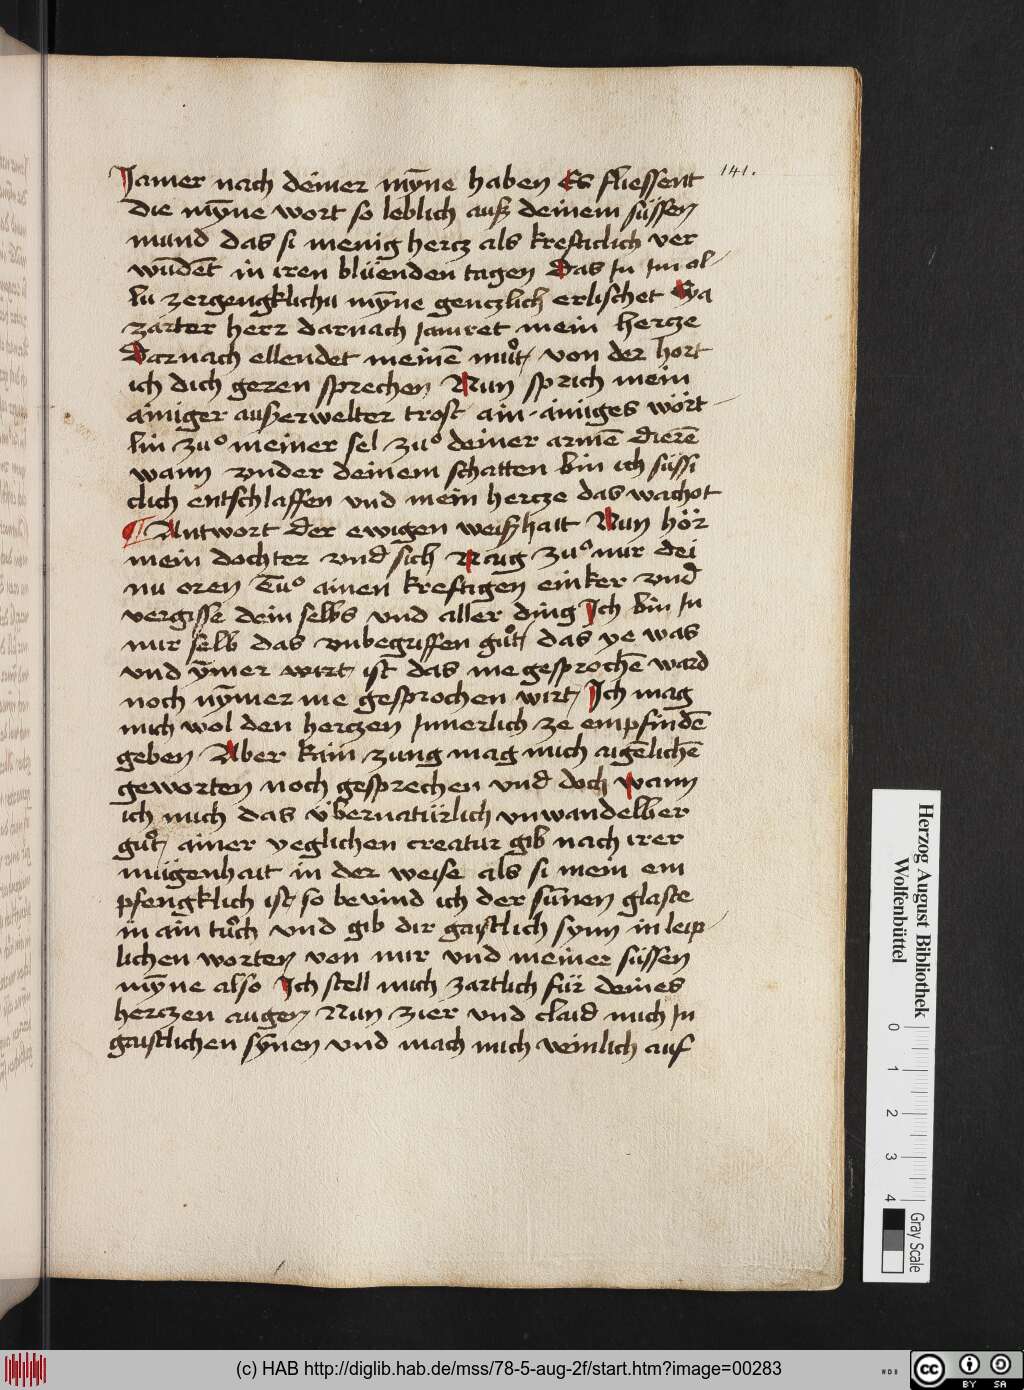 Jamer nach deiner mȳne haben Es fliessent
141.
die mȳne wort so leblich auß deinem süssen
mund das si menig hercz als krefticlich ver
wūdēt in iren blüenden tagen Das Jn Jm al
lu zergengklichu mȳne genczlich erlischet Eya
zarter herr darnach Jamret mein hercze
Darnach ellendet meinē muͦt von der hort
ich dich geren sprechen Nun sprich mein
ainiger außerwelter trost ain ainiges wört
lin zuͦ meiner sel zuͦ deiner armē dierē
wann vnder deinem schatten bin ich süssi
clich entschlaffen vnd mein hercze das wachot
¶ Antwort der ewigen weißhait Nun hör
mein dochter vnd sich Naig zuͦ mir dei
nu oren Tuͦ ainen kreftigen einker vnd
vergisse dein selbs vnd aller ding Ich bin Jn
mir selb das vnbegriffen guͦt das ye was
vnd ȳmer wirt ist das nie gesprochē ward
noch nȳmer nie gesprochen wirt Ich mag
mich wol den herczen Jnnerlich ze empfindē
geben Aber kain zung mag mich aigēlichē
geworten noch gesprechen vnd doch wann
ich mich das übernatürlich vnwandelber
guͦt ainer yeglichen creatur gib nach irer
mügenhait in der weise als si mein em
pfengklich ist so bevind ich der sūnen glaste
in ain tuͦch vnd gib dir gaistlich synn in leip
lichen worten von mir vnd meiner süssen
mȳne also Ich stell mich zartlich für deines
herczen augen Nun zier vnd claid mich Jn
gaistlichen sȳnen vnd mach mich veinlich auf
Herzog August Bibliothek
Wolfenbüttel
0 1 2 3 4
Gray Scale
(c) HAB http://diglib.hab.de/mss/78-5-aug-2f/start.htm?image=00283
WDB
cc BY SA